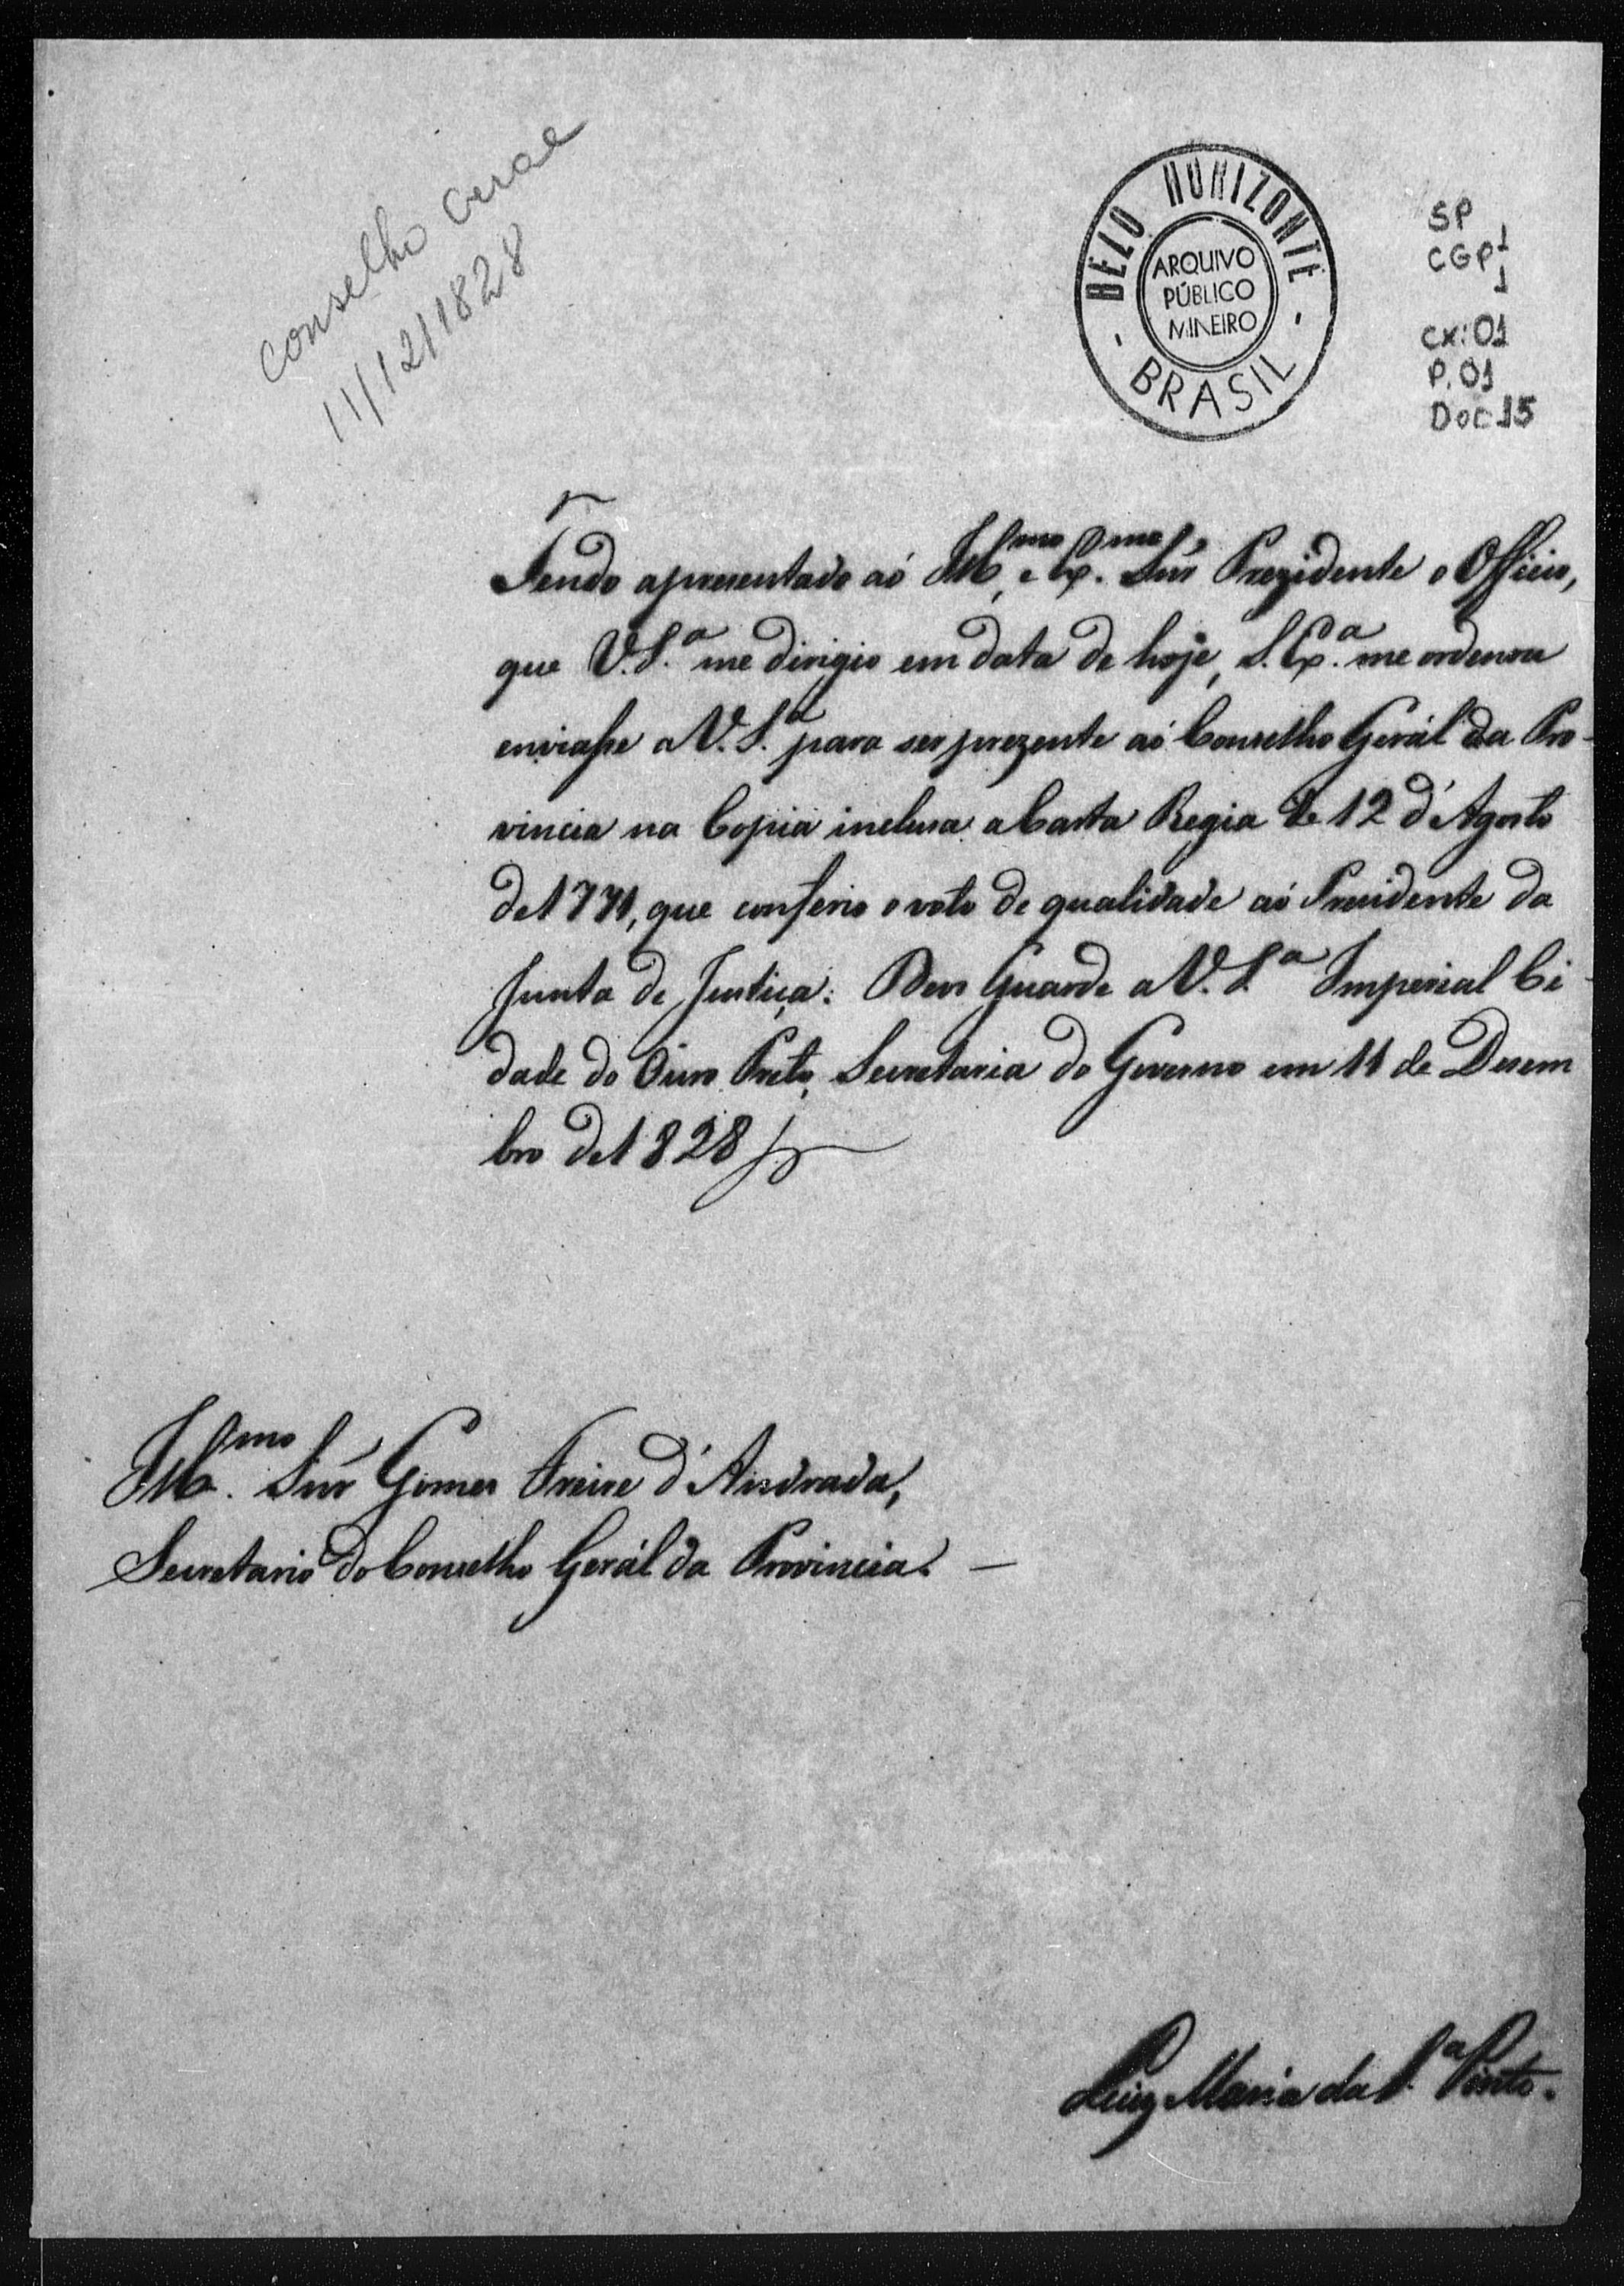 Conselho Geral
11/12/1828
BELO HORIZONTE
ARQUIVO
PÚBLICO
MINEIRO
- BRASIL -
SP
CGP1
1
CX: 01
P. 01
Doc 15
Tendo apresentado aó Ill.mo, e Ex.mo Snr' Prezidente o Officio,
que V. S.a me dirigio em data de hoje, S. Ex.a me ordenou
enviasse a V. S.a para ser prezente aó Conselho Gerál da Pro-
vincia na Copia inclusa a Carta Regia de 12 d'Agosto
de 1771, que conferio o voto de qualidade aó Presidente da
Junta de Justiça. Deos Guarde a V. S.a Imperial Ci-
dade do Ouro Preto, Secretaria do Governo em 11 de Desem
bro de 1828
Ill.mo Snr' Gomes Freire d'Andrada,
Secretario do Conselho Gerál da Provincia. —
Luiz Maria da S.a Pinto.